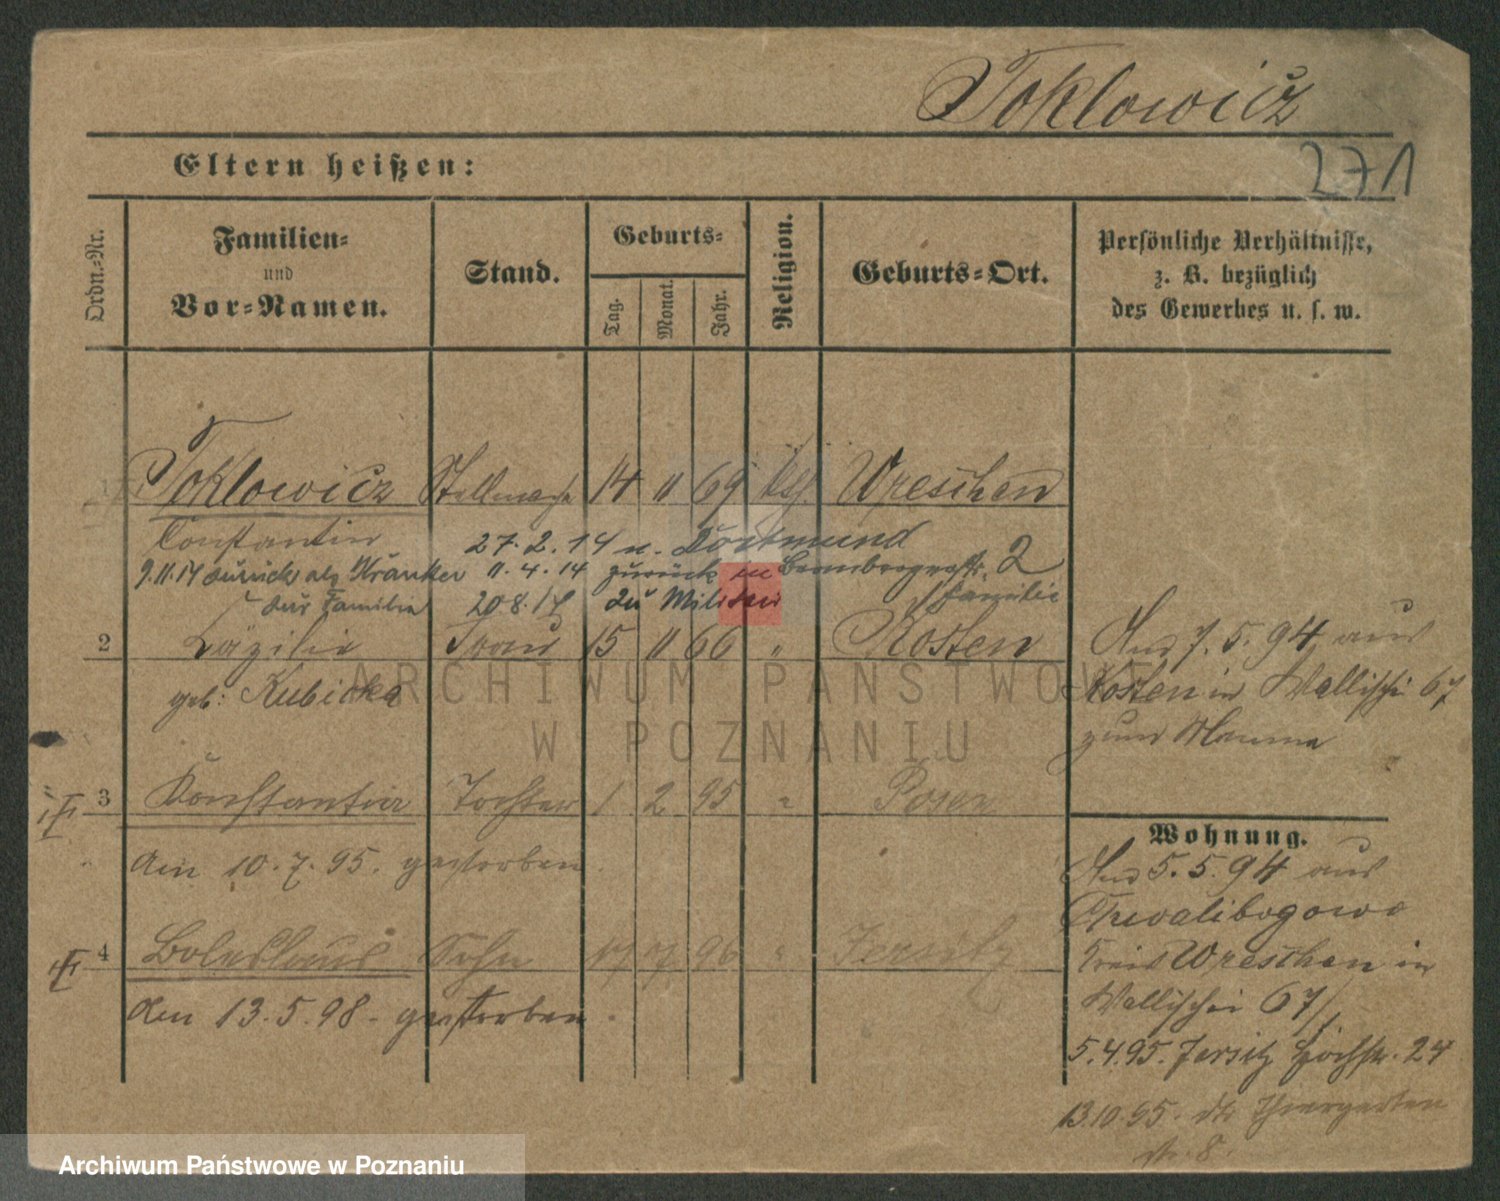 Toklowicz
271
Eltern heißen:
Ordn.-Nr.
Familien-
und
Vor-Namen.
Stand.
Geburts-
Tag.
Monat.
Jahr.
Religion.
Geburts-Ort.
Persönliche Verhältnisse,
z. B. bezüglich
des Gewerbes u. s. w.
1 Toklowicz Stellmacher 14 11 69 kath Wreschen
Constantin
27.2.14 n. Dortmund
9.11.14 zurück als Kranker 11.4.14 zurück in 2
zur Familie 20.8.14 zu Militär Familie
2 Cäzilie Frau 15 11 66 " Kosten
geb. Kubicka
And 7.5.94 aus
Kosten in Wallischei 67
zum Manne
3 Konstantia Tochter 1 2 95 " Posen
am 10.7.95. gestorben.
4 Boleslaus Sohn 17 7 96 " Jersitz
den 13.5.98. gestorben.
Wohnung.
And 5.5.94 aus
Chwalibogowo
Kreis Wreschen in
Wallischei 67/
5.4.95. Jersitz Hochstr. 24
13.10.95. Thiergarten
8.
ARCHIWUM PAŃSTWOWE
W POZNANIU
Archiwum Państwowe w Poznaniu